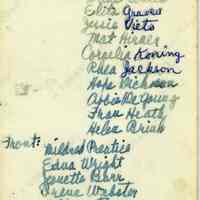 Elita Graves
Jessie Vieto
Mat Hiraes
Cornelia Koning
Rhea Jackson
Hope Dickason
Abbie DeYoung
Fran Heath
Helen Brink
Front: Mildred Prentice
Edna Wright
Jenette Barr
Irene Webster